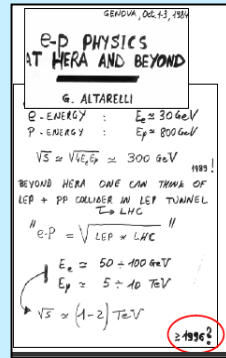 GENOVA, Oct. 1-3, 1984
e-p PHYSICS
AT HERA AND BEYOND
G. ALTARELLI
e-ENERGY : Ee ≃ 30 GeV
P-ENERGY : Ep ≃ 800 GeV
√S ≃ √4EeEp ≃ 300 GeV
1989!
BEYOND HERA ONE CAN THINK OF
LEP + PP COLLIDER IN LEP TUNNEL
↳ LHC
"e-P = √LEP × LHC"
Ee ≃ 50 ÷ 100 GeV
Ep ≃ 5 ÷ 10 TeV
√S ≃ (1-2) TeV
≥ 1996?